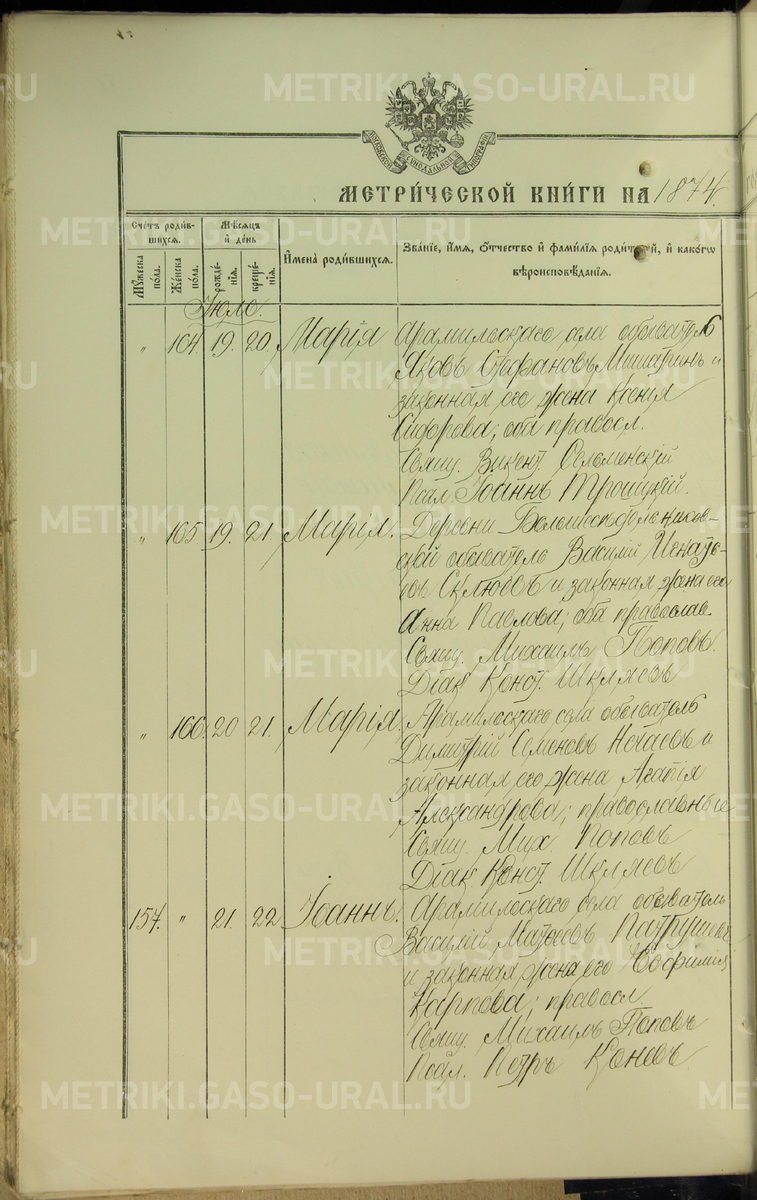 METRIKI.GASO-URAL.RU
МЕТРИ́ЧЕСКОЙ КНИ́ГИ НА 1874.
Сче́тъ роди́в-
шихся.
Мѣ́сяцъ
и҆ де́нь
Мꙋ́жеска
по́ла.
Же́нска
по́ла.
рожде́-
нїя.
креще́-
нїя.
И҆мена̀ роди́вшихся.
Зва́нїе, и҆́мя, ѻ҆́тчество и҆ фами́лїя роди́телей, и҆ како́гѡ
вѣроисповѣ́данїя.
Июль.
„ 164. 19. 20. Марія Арамильскаго села обыватель
Яковъ Стефановъ и
законная его жена Ксенія
Сидорова; оба правосл.
Свящ. Викент.
Псал. Іоаннъ Троицкій.
„ 165 19. 21. Марія. Деревни
ской обыватель Василій Игнать-
евъ и законная жена его
Анна Павлова; оба православ.
Свящ. Михаилъ Поповъ.
Діак. Конст. Шкляевъ
„ 166. 20 21. Марія. Арамильскаго села обыватель
Димитрій Семеновъ Нечаевъ и
законная его жена Агапія
Александрова; православные
Свящ. Мих. Поповъ
Діак. Конст. Шкляевъ
157. „ 21. 22 Іоаннъ. Арамильскаго села обыватель
Василій Матѳеевъ Патрушевъ
и законная жена его Евфимія
Карпова; правосл
Свящ. Михаилъ Поповъ
Псал. Петръ Коневъ.